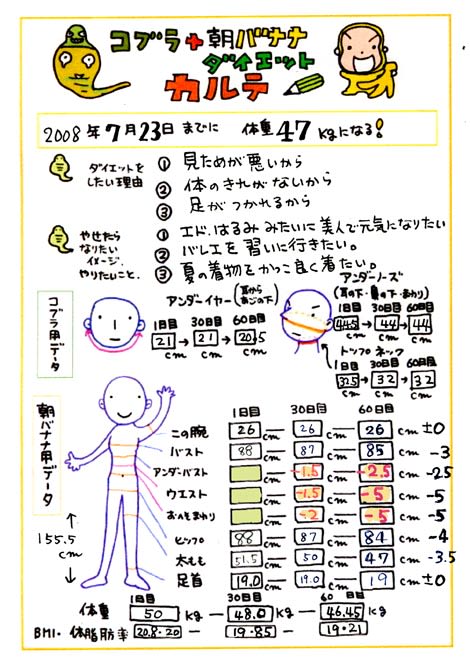 コブラ+朝バナナ
ダイエット
カルテ
2008年7月23日までに 体重47kgになる!
ダイエットを
したい理由
① 見ためが悪いから
② 体のきれがないから
③ 足がつかれるから
やせたら
なりたい
イメージ.
やりたいこと.
① エド.はるみみたいに美人で元気になりたい
② バレエを習いに行きたい。
③ 夏の着物をかっこ良く着たい。
コブラ用データ
アンダーイヤー(耳から あごの下)
1日目 30日目 60日目
21 → 21 → 20.5
cm cm cm
アンダーノーズ
(耳の下・鼻の下・まわり)
1日目 30日目 60日目
44.5 → 44 → 44
cm cm cm
トップネック
1日目 30日目 60日目
32.5 → 32 → 32
cm cm cm
朝バナナ用データ
155.5
cm
1日目 30日目 60日目
この腕 26 cm 26 cm 26 cm ±0
バスト 88 cm 87 cm 85 cm -3
アンダーバスト cm -1.5 cm -2.5 cm -25
ウエスト cm -1.5 cm -5 cm -5
おへそまわり cm -2 cm -5 cm -5
ヒップ 88 cm 87 cm 84 cm -4
太もも 51.5 cm 50 cm 47 cm -3.5
足首 19.0 cm 19.0 cm 19 cm ±0
1日目 30日目 60日目
体重 50 kg — 48.0 kg — 46.45 kg
BMI・体脂肪率 20.8・20 — 19・85 — 19・21